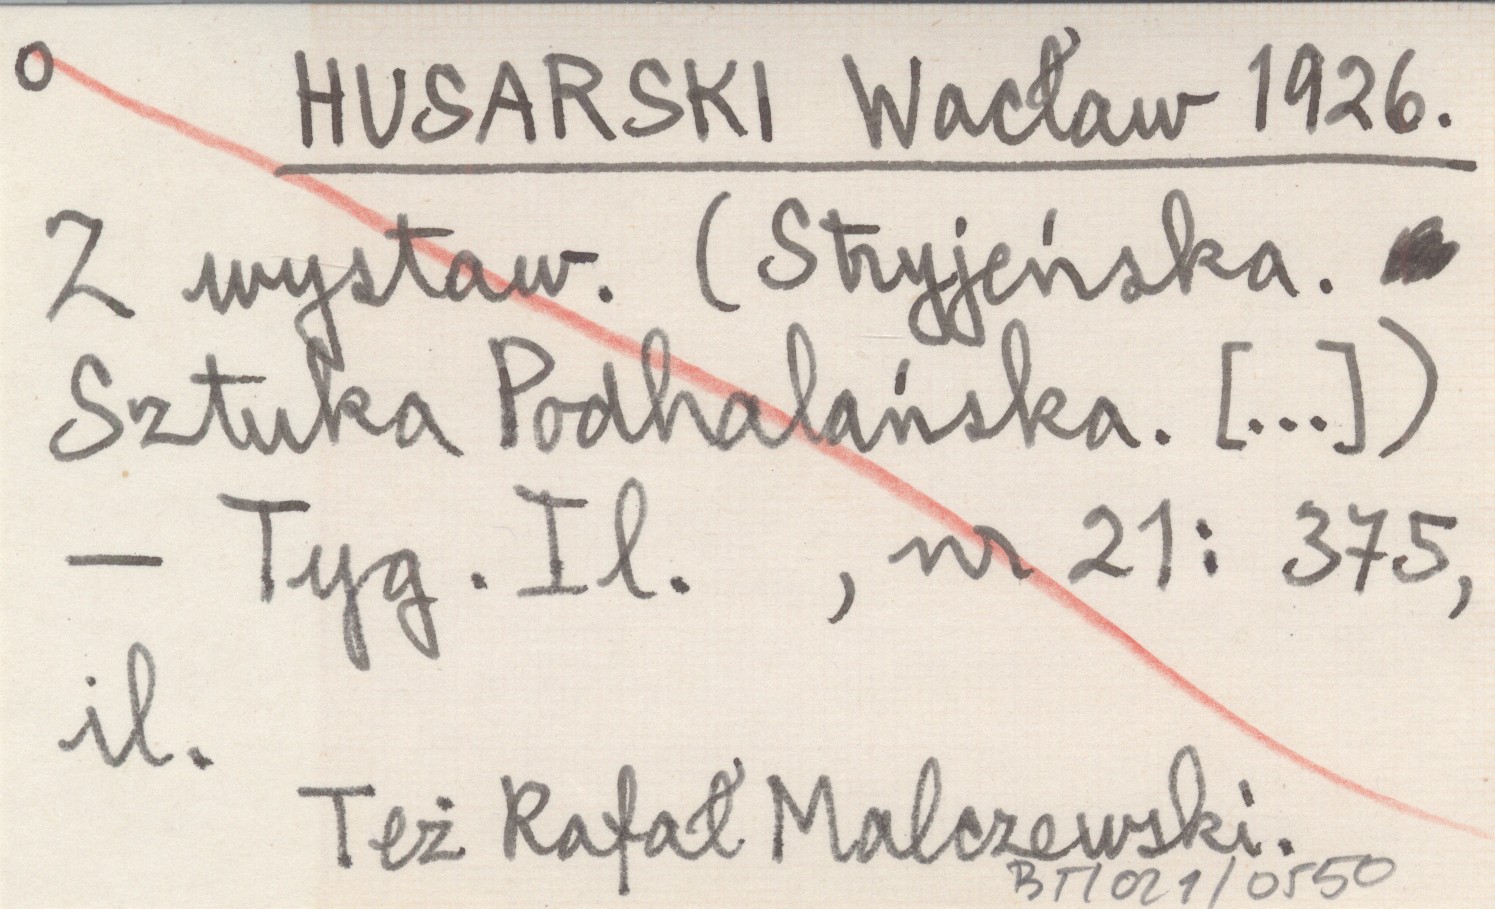 o HUSARSKI Wacław 1926.
Z wystaw. (Stryjeńska.
Sztuka Podhalańska. [...])
— Tyg. Il. , nr 21: 375,
il.
Też Rafał Malczewski.
BT/021/0550